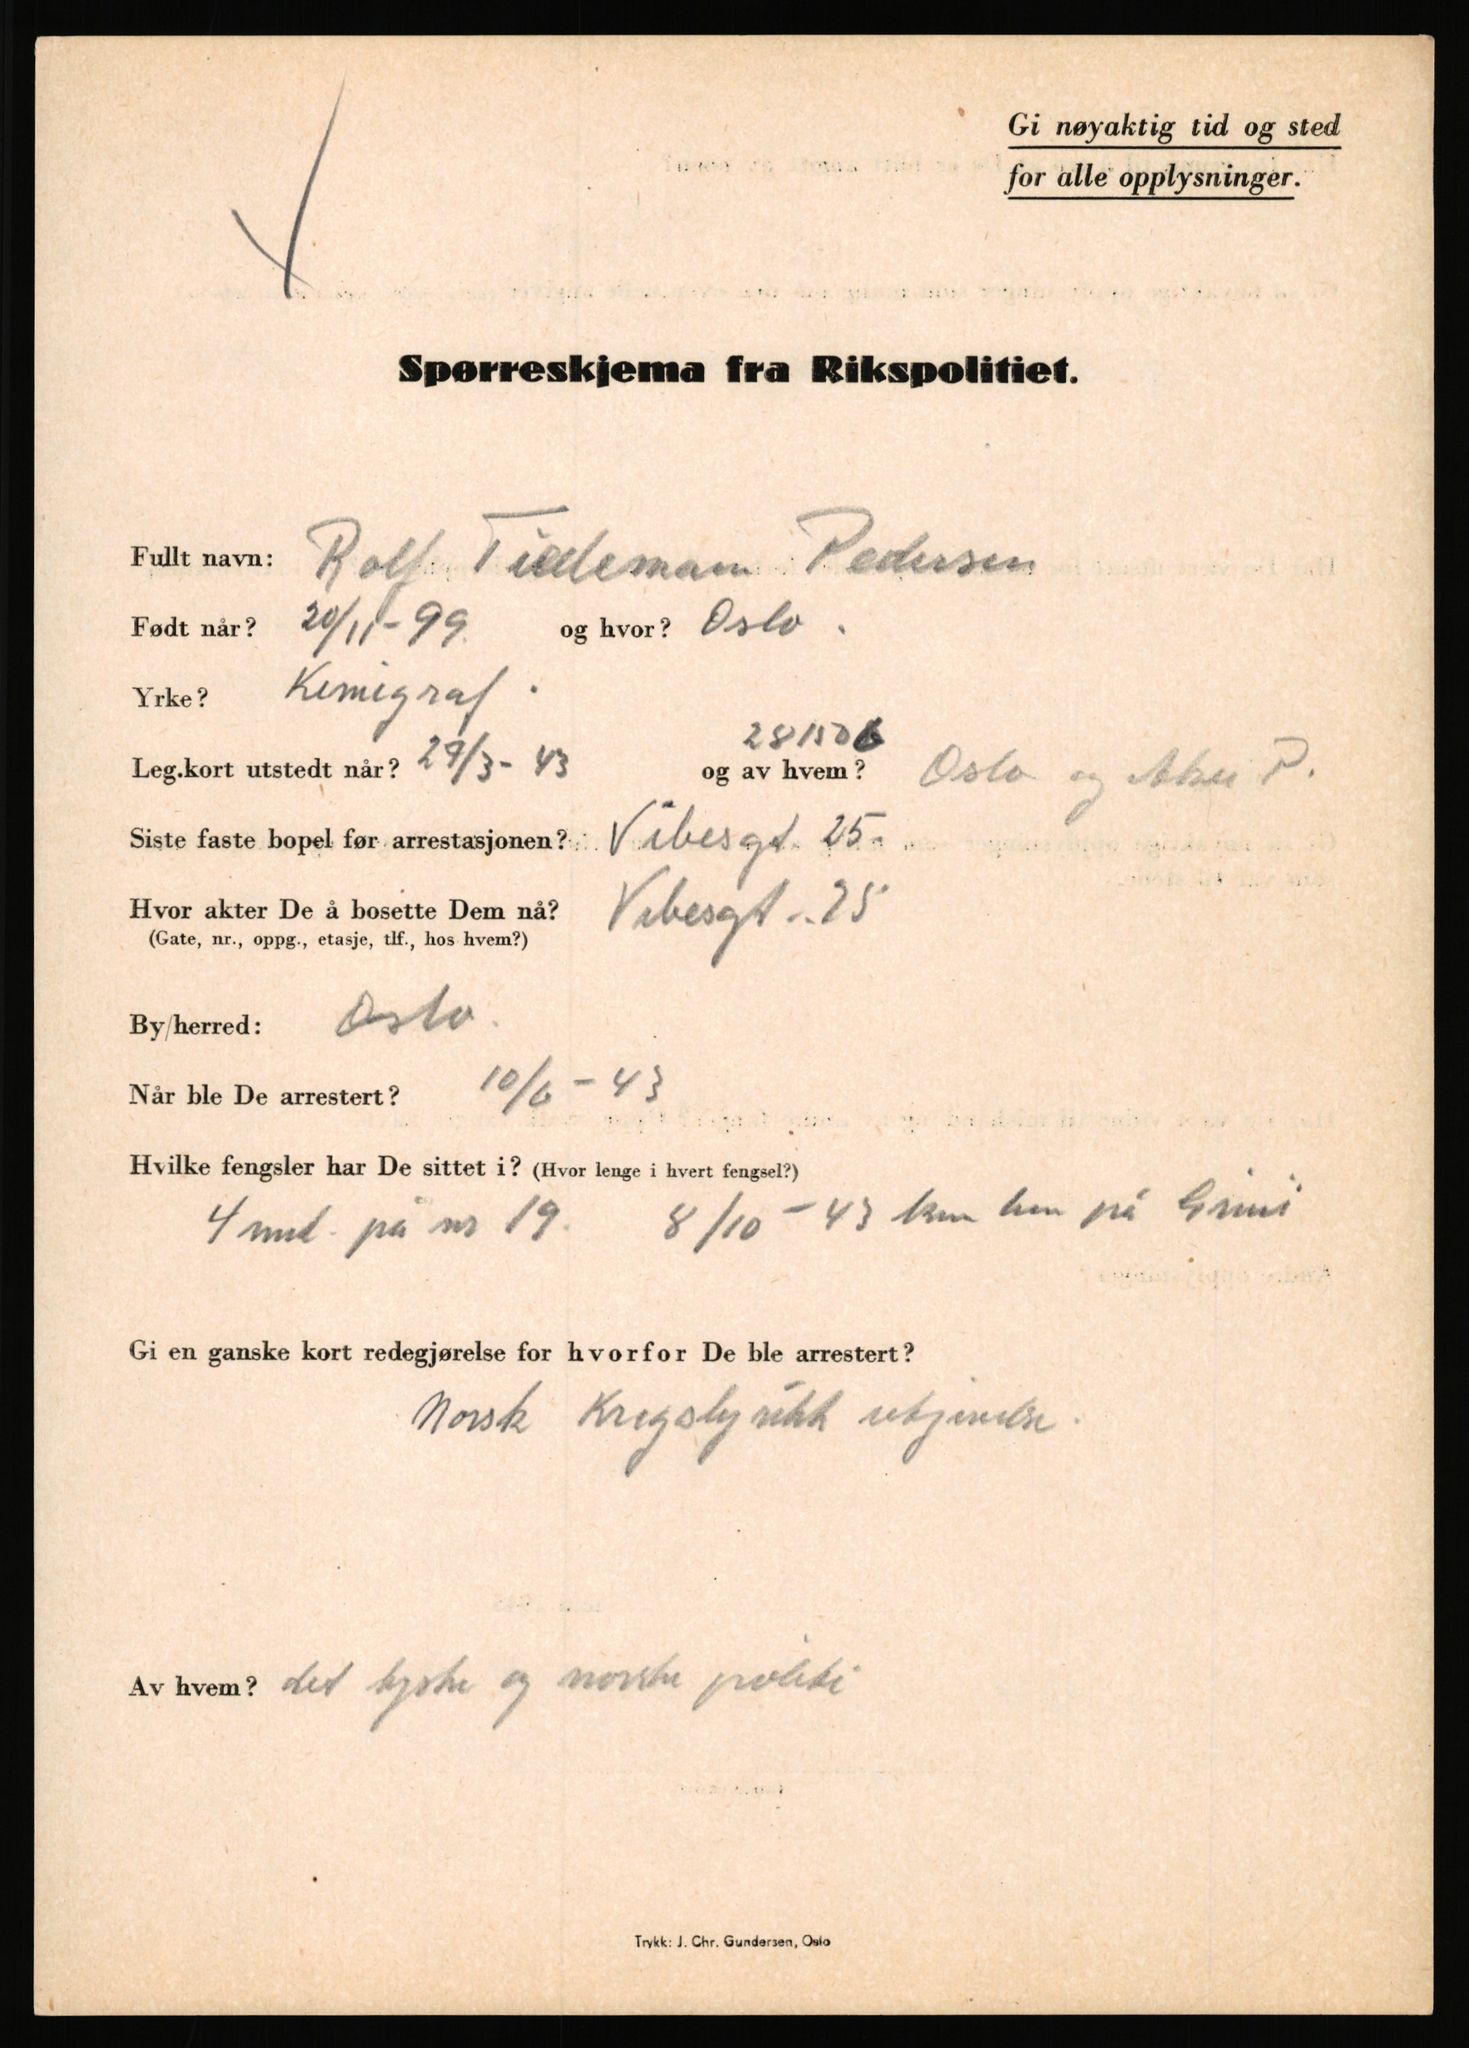 Gi nøyaktig tid og sted
for alle opplysninger.
Spørreskjema fra Rikspolitiet.
Fullt navn: Rolf Tiedemann Pedersen
Født når? 20/11-99 og hvor? Oslo.
Yrke? Kemigraf.
281506
Leg.kort utstedt når? 29/3-43 og av hvem? Oslo og Aker P.
Siste faste bopel før arrestasjonen? Vibesgt. 25
Hvor akter De å bosette Dem nå? Vibesgt. 25
(Gate, nr., oppg., etasje, tlf., hos hvem?)
By/herred: Oslo.
Når ble De arrestert? 10/6-43
Hvilke fengsler har De sittet i? (Hvor lenge i hvert fengsel?)
4 mnd. på nr 19. 8/10-43 kom hen på Grini
Gi en ganske kort redegjørelse for hvorfor De ble arrestert?
Norsk Krigslyrikk utgivelse.
Av hvem? det tyske og norske politi
Trykk: J. Chr. Gundersen, Oslo